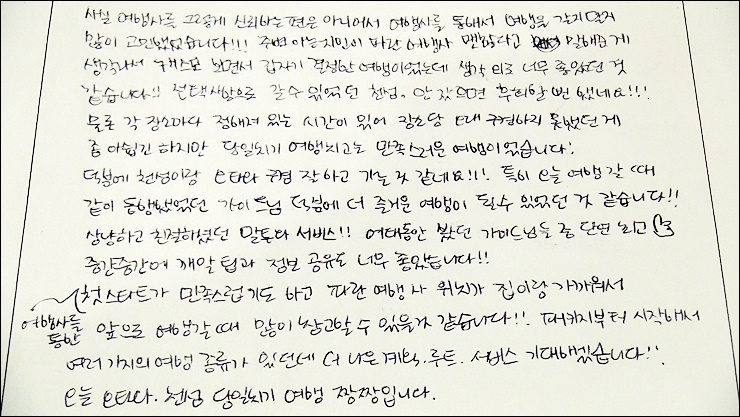 사실 여행사를 그렇게 신뢰하는 편은 아니어서 여행사를 통해서 여행을 갈지 말지
많이 고민했었습니다!!! 주변 아는 지인이 파란 여행사 괜찮다고 말해준 게
생각나서 보면서 갑자기 결정한 여행이었는데 생각 외로 너무 좋았던 것
같습니다!! 선택사항으로 갈 수 있었던 천섬. 안 갔으면 후회할 뻔 했네요!!!
물론 각 장소마다 정해져 있는 시간이 있어 장소당 오래 구경하지 못했던 게
좀 아쉽긴 하지만 당일치기 여행치고는 만족스러운 여행이었습니다!
덕분에 천섬이랑 오타와 구경 잘 하고 가는 것 같네요!!! 특히 오늘 여행 갈 때
같이 동행했었던 가이드님 덕분에 더 즐거운 여행이 될 수 있었던 것 같습니다!!
상냥하고 친절하셨던 말투와 서비스!! 여태동안 봤던 가이드님들 중 단연 최고
중간중간에 깨알 팁과 정보 공유도 너무 좋았습니다!!
첫 스타트가 만족스럽기도 하고 파란 여행사 위치가 집이랑 가까워서
여행사를 통한
앞으로 여행갈 때 많이 참고할 수 있을 것 같습니다!!. 패키지부터 시작해서
여러 가지의 여행 종류가 있던데 더 나은 계획. 루트. 서비스 기대하겠습니다!!
오늘 오타와. 천섬 당일치기 여행 짱짱입니다.